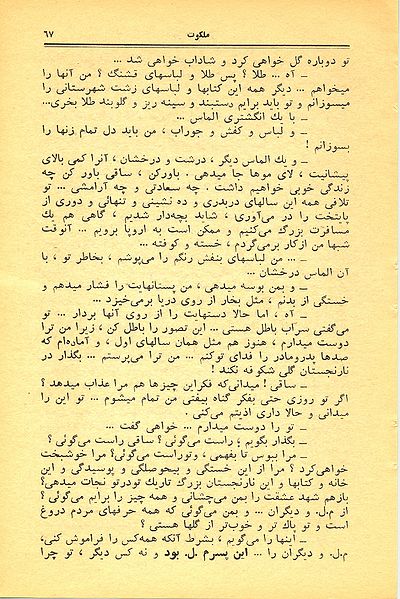 ملکوت ۶۷
تو دوباره گل خواهی کرد و شاداب خواهی شد ...
ـ آه ... طلا ؟ پس طلا و لباسهای قشنگ ؟ من آنها را
میخواهم ... دیگر همه این کتابها و لباسهای زشت شهرستانی را
میسوزانم و تو باید برایم دستبند و سینه ریز و گلوبند طلا بخری...
ـ با یك انگشتری الماس ...
ـ و لباس و کفش و جوراب ، من باید دل تمام زنها را
بسوزانم !
ـ و یك الماس دیگر ، درشت و درخشان ، آنرا کمی بالای
پیشانیت ، لای موها جا میدهی . باورکن ، ساقی باور کن چه
زندگی خوبی خواهیم داشت . چه سعادتی و چه آرامشی ... تو
تلافی همه این سالهای دربدری و ده نشینی و تنهائی و دوری از
پایتخت را در می‌آوری ، شاید بچه‌دار شدیم ، گاهی هم یك
مسافرت بزرگ می‌کنیم و ممکن است به اروپا برویم ... آنوقت
شبها من ازکار برمی‌گردم ، خسته و کوفته ...
ـ ... من لباسهای بنفش رنگم را می‌پوشم ، بخاطر تو ، با
آن الماس درخشان ...
ـ و بمن بوسه میدهی ، من پستانهایت را فشار میدهم و
خستگی از بدنم ، مثل بخار از روی دریا برمی‌خیزد ...
ـ آه ، اما حالا دستهایت را از روی آنها بردار ... تو
می‌گفتی سراب باطل هستی ... این تصور را باطل کن ، زیرا من ترا
دوست میدارم ، هنوز هم مثل همان سالهای اول ، و آماده‌ام که
صدها پدرومادر را فدای توکنم ... من ترا می‌پرستم ... بگذار در
نارنجستان گلی شکوفه نکند !
ـ ساقی ! میدانی‌که فکراین چیزها هم مرا عذاب میدهد ؟
اگر تو روزی حتی بفکر گناه بیفتی من تمام میشوم ... تو این را
میدانی و حالا داری اذیتم می‌کنی .
ـ تو را دوست میدارم ... خواهی گفت ...
ـ بگذار بگویم ؛ راست می‌گوئی ؟ ساقی راست می‌گوئی ؟
ـ مرا ببوس تا بفهمی ، وتوراست می‌گوئی؟ مرا خوشبخت
خواهی‌کرد ؟ مرا از این خستگی و بیحوصلگی و پوسیدگی و این
خانه و کتابها و این نارنجستان بزرگ تاریك تودرتو نجات میدهی؟
بازهم شهد عشقت را بمن می‌چشانی و همه چیز را برایم می‌گوئی ؟
از م.ل. و دیگران ... و بمن می‌گوئی که همه حرفهای مردم دروغ
است و تو پاك تر و خوب‌تر از گلها هستی ؟
ـ اینها را می‌گویم ، بشرط آنکه همه‌کس را فراموش کنی،
م.ل. و دیگران را ... این پسرم م.ل. بود و نه کس دیگر ، تو چرا